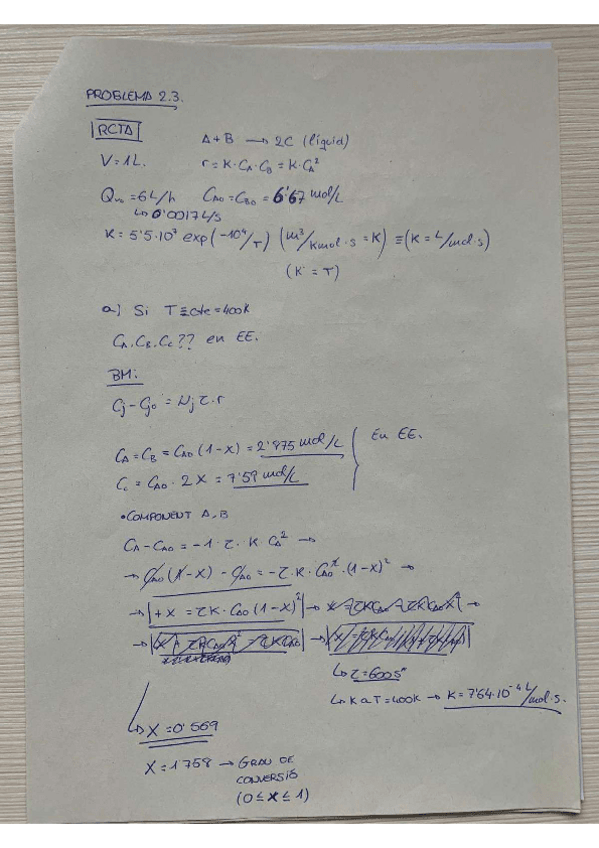 PROBLEMA 2.3.
RCTA
A+B → 2C (líquid)
V=1L.
r=K·CA·CB = K·CA²
Qvo=6L/h CAO=CBO=6'67 mol/L
↳ 0'0017L/s
K= 5'5·10⁷ exp(-10⁴/T) (m³/Kmol·s = K) ≡ (K = L/mol·s)
(K = T)
a) Si T≡cte=400K
CA.CB.CC?? en EE.
BM:
Cj-Cjo = νj τ·r
CA=CB=CAO(1-X)=2'875 mol/L
En EE.
CC=CAO·2X=7'59 mol/L
•COMPONENT A,B
CA-CAO=-1·τ·K·CA² →
→ CAO(1-X) - CAO=-τ·K·CAO²·(1-X)² →
→ |+X = τK·CAO(1-X)²| →
↳ τ=600s
↳ K a T=400K → K=7'64·10⁻⁴ L/mol·s.
↳ X=0'569
X=1'758 → GRAU DE
CONVERSIÓ
(0≤X≤1)